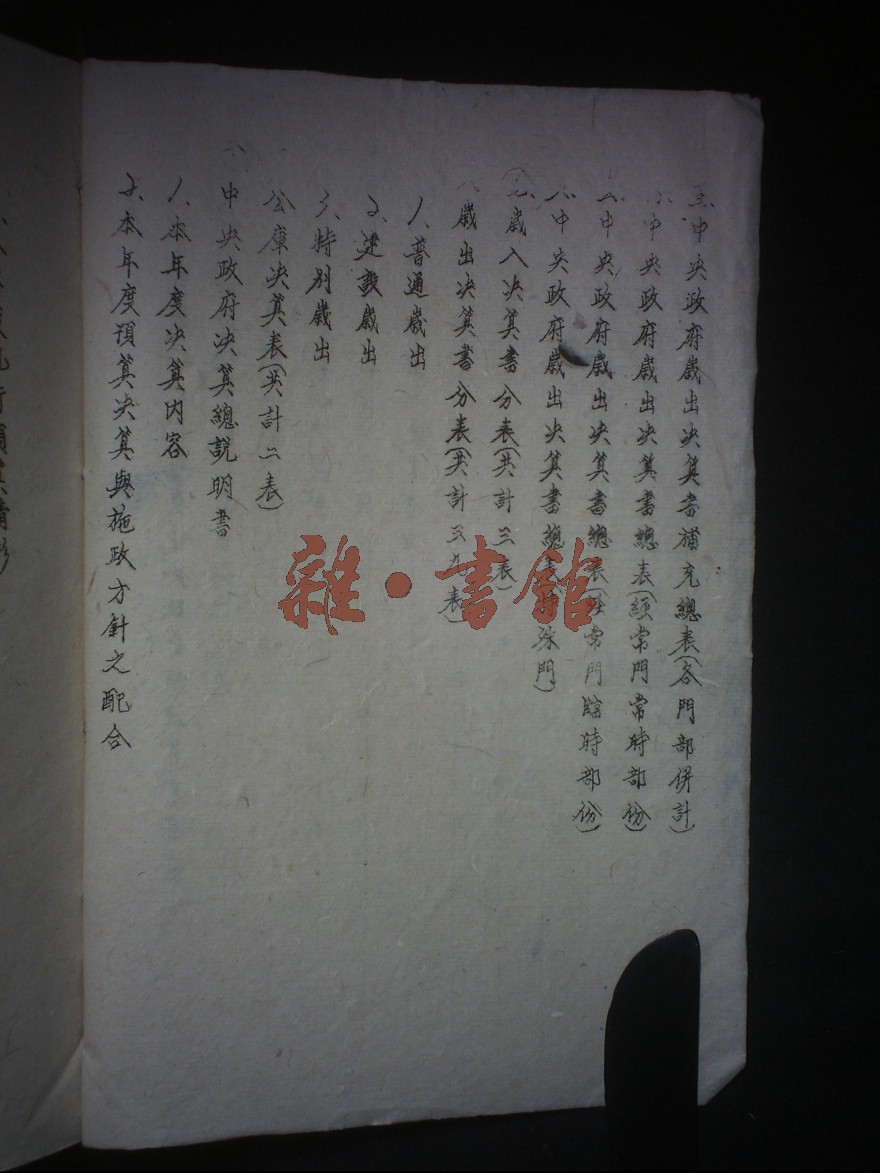 三、中央政府歲出决算書補充總表(各門部併計)
中央政府歲出决算書總表(經常門常時部份)
中央政府歲出决算書總表(經常門臨時部份)
中央政府歲出决算書總表 殊門)
歲入决算書分表(共計三表)
歲出决算書分表(共計 表)
1、普通歲出
2、建設歲出
3、特別歲出
公庫决算表(共計二表)
中央政府决算總說明書
1、本年度决算內容
2、本年度預算决算與施政方針之配合
雜·書館